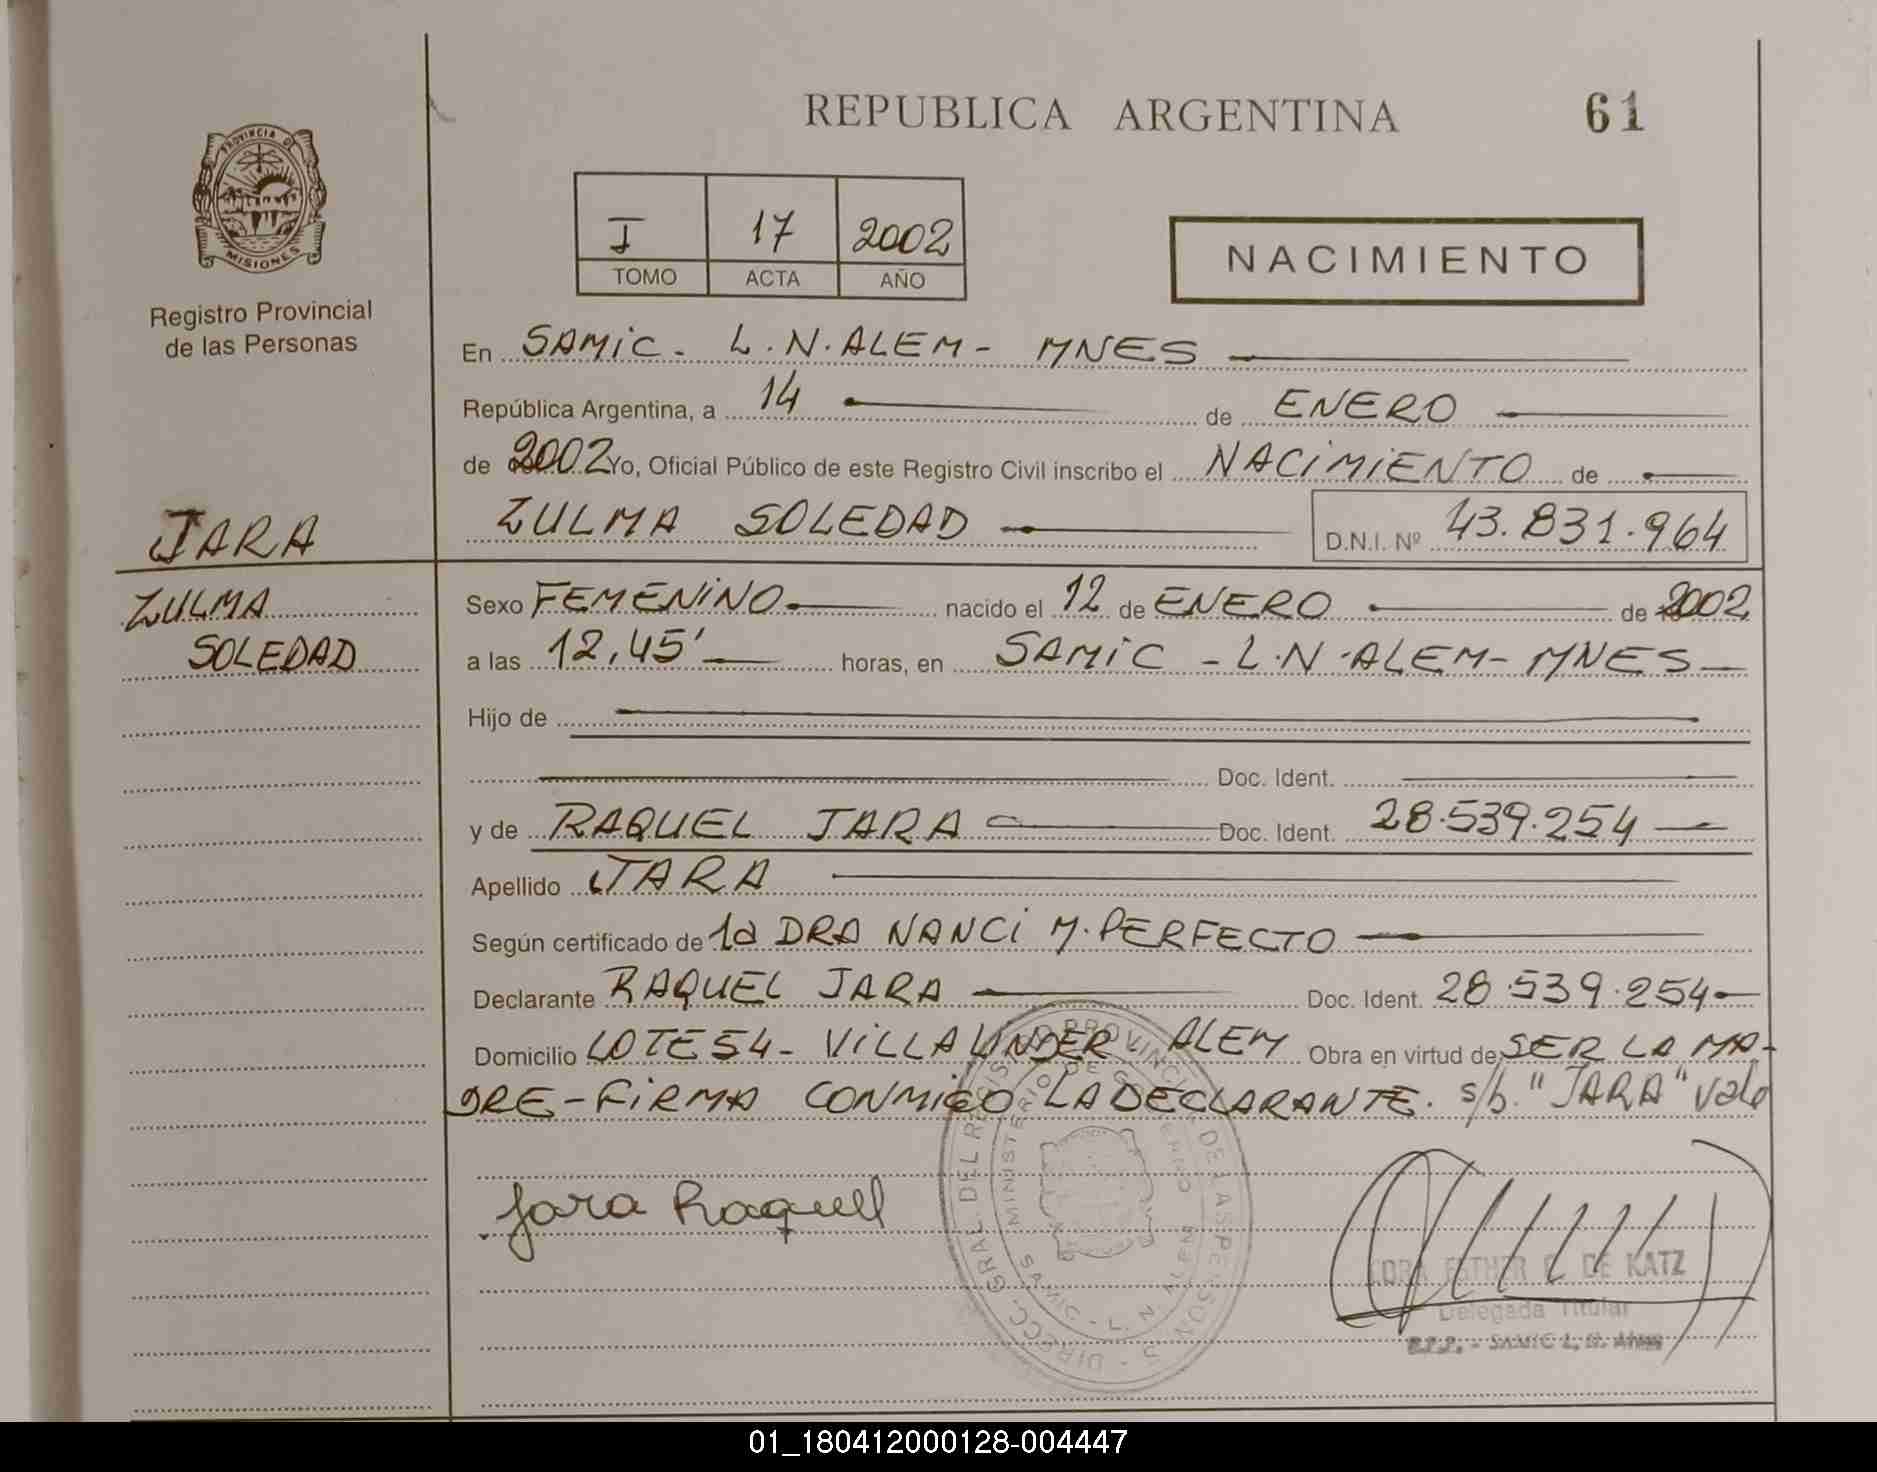 REPUBLICA ARGENTINA
61
PROVINCIA DE
MISIONES
Registro Provincial
de las Personas
I 17 2002
TOMO ACTA AÑO
NACIMIENTO
En SAMIC - L.N.ALEM - MNES
República Argentina, a 14 de ENERO
de 2002 Yo, Oficial Público de este Registro Civil inscribo el NACIMIENTO de
JARA
ZULMA SOLEDAD
D.N.I. Nº 43.831.964
ZULMA
SOLEDAD
Sexo FEMENINO nacido el 12 de ENERO de 2002
a las 12,45' horas, en SAMIC - L.N.ALEM - MNES
Hijo de
Doc. Ident.
y de RAQUEL JARA Doc. Ident. 28.539.254
Apellido JARA
Según certificado de la DRA NANCI M. PERFECTO
Declarante RAQUEL JARA Doc. Ident. 28.539.254
Domicilio LOTE 54 - VILLA LINDER ALEM Obra en virtud de SER LA MA-
DRE - FIRMA CONMIGO LA DECLARANTE. s/b. "JARA" vale
Jara Raquel
DIRECC. GRAL. DEL REGISTRO PROVINCIAL DE LAS PERSONAS
MINISTERIO DE GOBIERNO
SAMIC - L. N. ALEM
ESTHER DE KATZ
Delegada Titular
SAMIC L. N. Alem
01_180412000128-004447